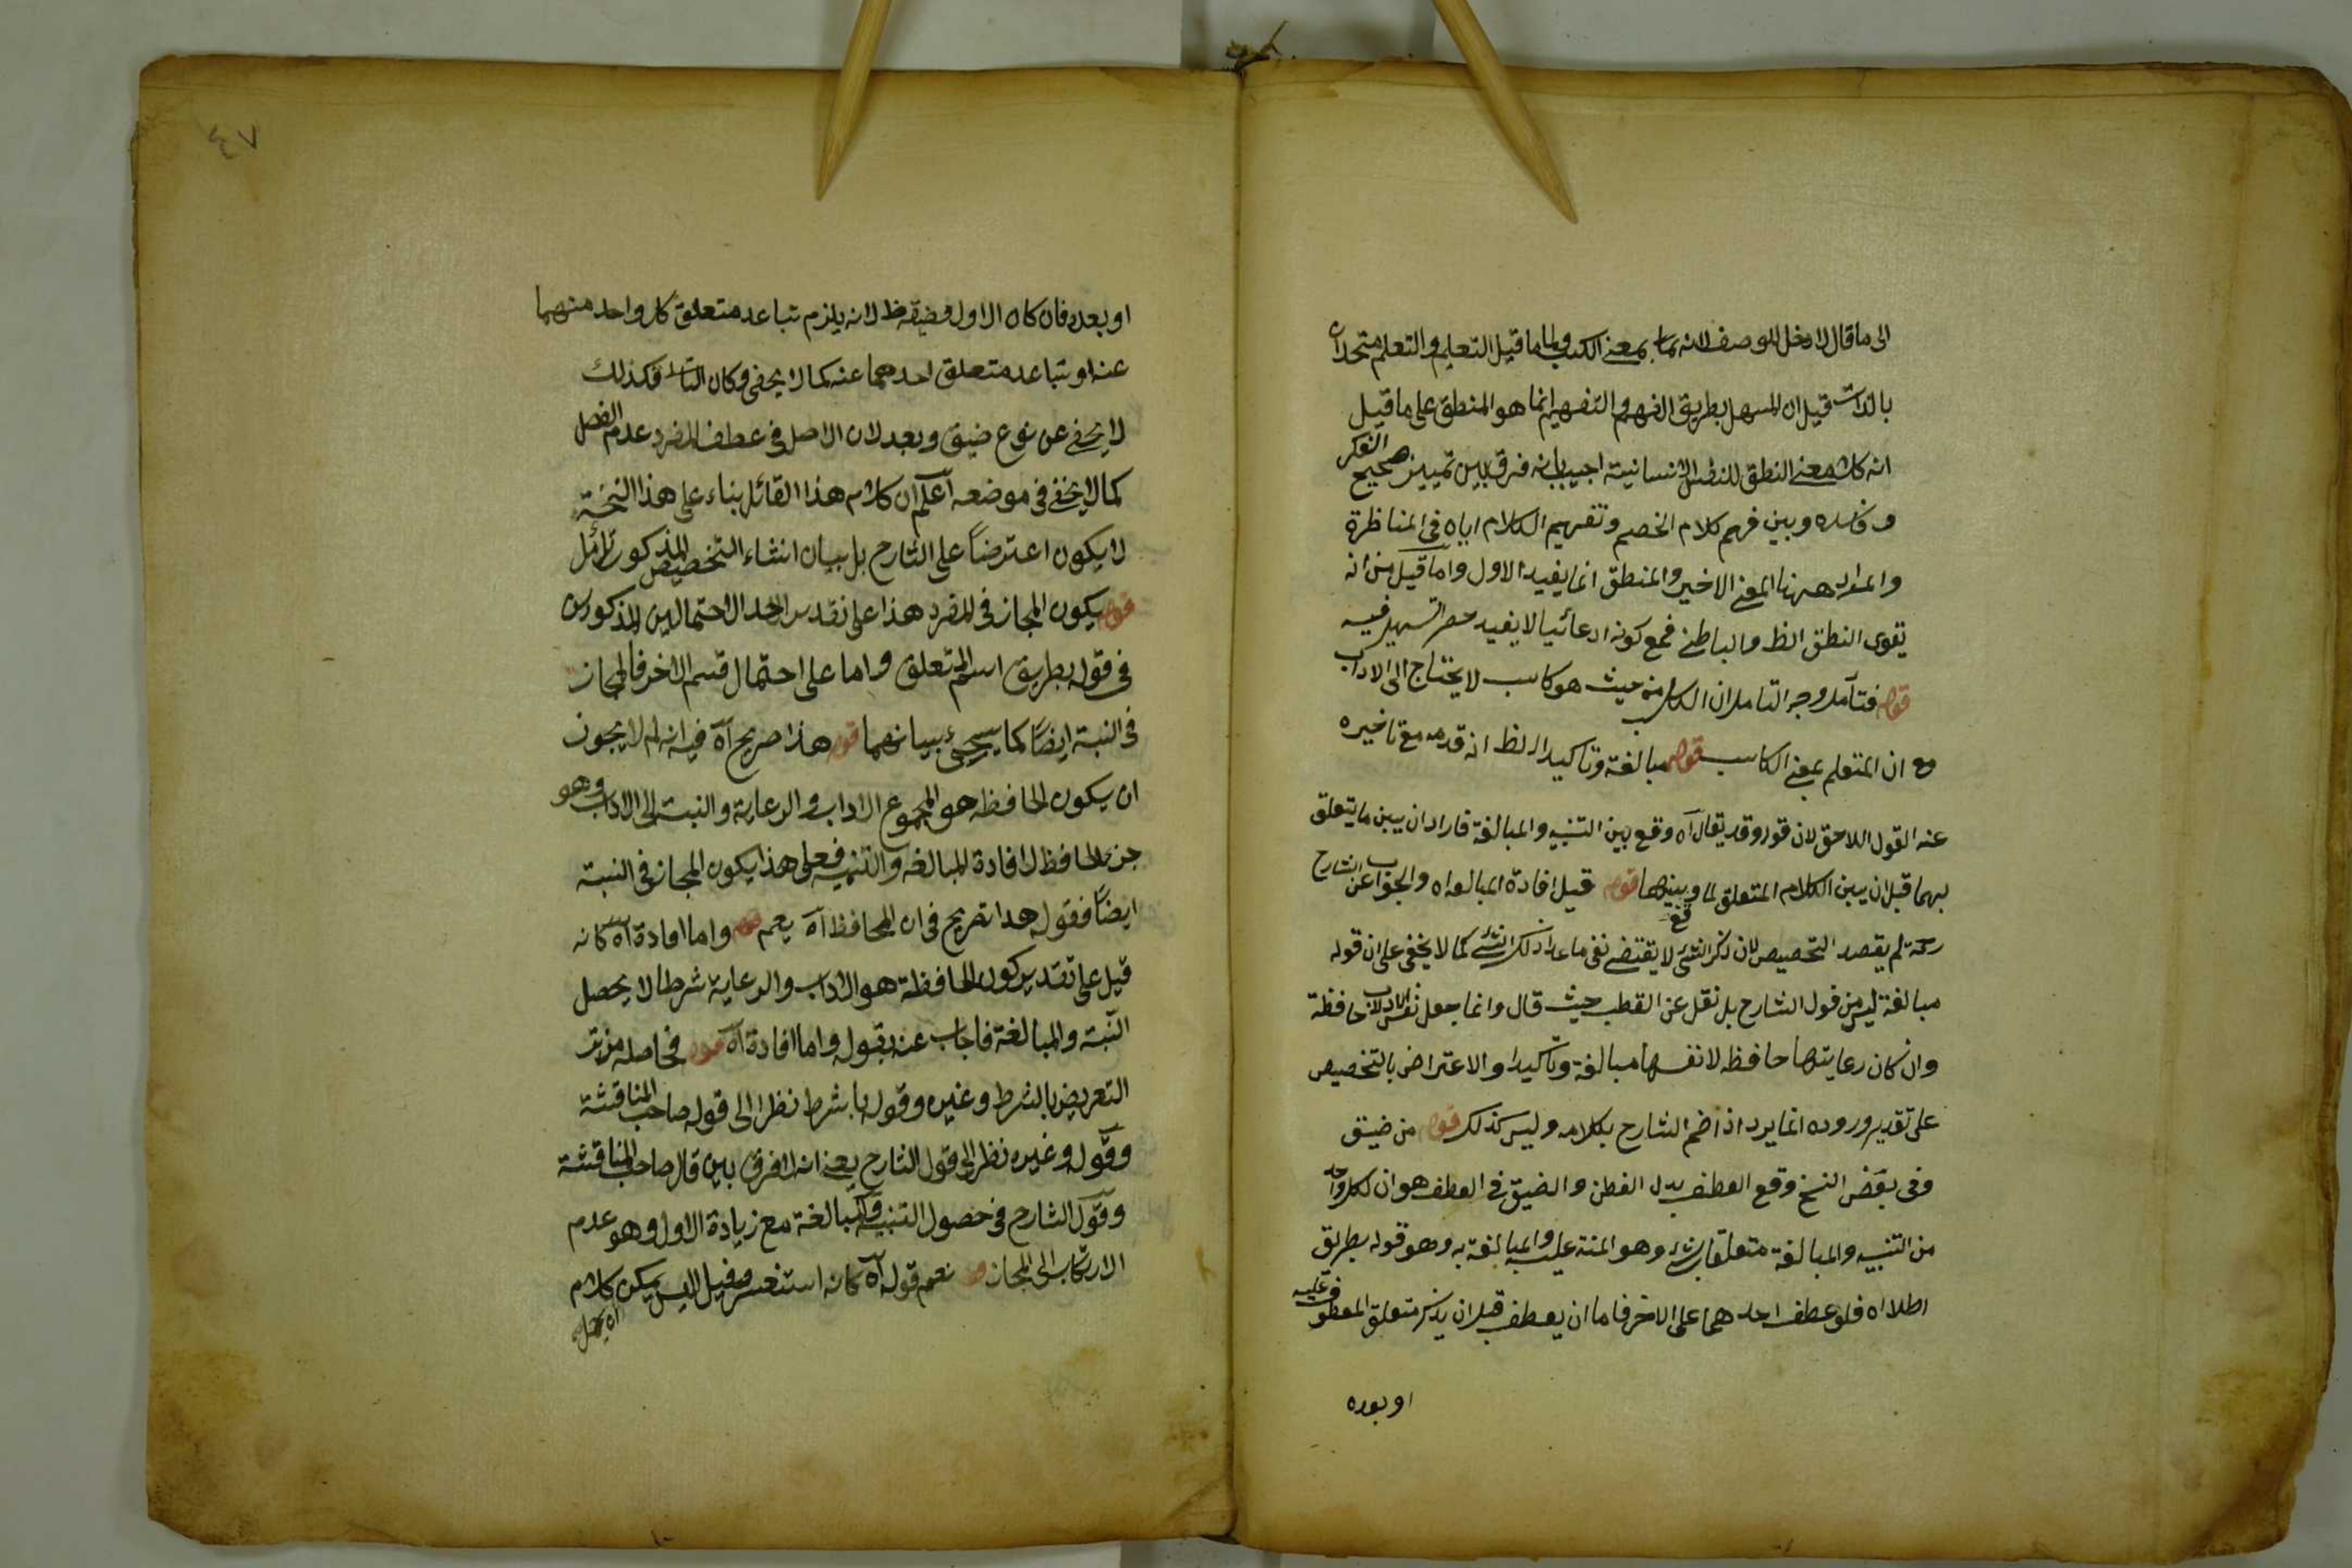 الى ما قال لا دخل للوصف لانه بمعنى الكسب ولما قيل التعليم والتعلم متحدان
بالذات قيل ان المسهل بطريق الفهم والتفهيم انما هو المنطق على ما قيل
انه كان معنى النطق للنفس الانسانية اجيب بانه فرق بين تمييز صحيح الفكر
وفاسده وبين فهم كلام الخصم وتفهيم الكلام اياه فى المناظرة
والمراد ههنا المعنى الاخير والمنطق انما يفيد الاول واما قيل من انه
يقوى النطق الظ والباطنى فمع كونه ادعائيا لا يفيد حصر التسهيل فيه
قوله فتأمل وجه التامل ان الكاسب من حيث هو كاسب لا يحتاج الى الاداب
مع ان المتعلم بمعنى الكاسب قوله مبالغة وتاكيدا الظ انه قدمه مع تاخيره
عنه القول اللاحق لان قوله وقد يقال آه وقع بين التنبيه والمبالغة فاراد ان يبين ما يتعلق
بهما قبل ان يبين الكلام المتعلق لما وبينهما قوله قيل افادة المبالغه اه والجواب عن الشارح
رحمه لم يقصد التخصيص لان ذكر الشئ لا يقتضى نفى ما عدا ذلك الشئ كما لا يخفى على ان قوله
مبالغة ليس من قول الشارح بل نقل عن القطب حيث قال وانما جعل نفس الاداب حافظة
وان كان رعايتها حافظه لا نفسها مبالغة وتاكيدا والاعتراض بالتخصيص
على تقدير وروده انما يرد اذا ضم الشارح بكلامه وليس كذلك قوله من ضيق
وفى بعض النسخ وقع العطف بدل الفطن والضيق فى العطف هو ان لكل واحد
من التنبيه والمبالغة متعلقا بشئ وهو المنبه عليه والمبالغة به وهو قوله بطريق
اطلا اه فلو عطف احدهما على الاخر فاما ان يعطف قبل ان يذكر متعلق المعطوف عليه
او بعده
٤٧
او بعده فان كان الاول فضيقه ظ لانه يلزم تباعد متعلق كل واحد منهما
عنه او تباعد متعلق احدهما عنه كما لا يخفى وكان الثانى فكذلك
لا يخفى عن نوع ضيق وبعد لان الاصل فى عطف المفرد عدم الفصل
كما لا يخفى فى موضعه اعلم ان كلام هذا القائل بناء على هذا النسخة
لا يكون اعتراضاً على الشارح بل بيان انشاء التخصيص المذكور تأمل
قوله يكون المجاز فى المفرد هذا على تقدير احد الاحتمالين المذكورين
فى قوله بطريق اسم المتعلق واما على احتمال قسم الاخر فالمجاز
فى النسبة ايضاً كما سيجئ بيانهما قوله هذا صريح آه فيه انه لم لا يجوز
ان يكون الحافظه هو المجموع الاداب والرعاية والنسبة الى الاداب وهو
جزء الحافظ لافادة المبالغه والتنبيه فعلى هذا يكون المجاز فى النسبة
ايضاً فقوله هذا تصريح فى ان المحافظ آه يعم قوله واما افادة آه كانه
قيل على تقدير كون الحافظة هو الاداب والرعاية شرطا لا يحصل
النسبة والمبالغة فاجاب عنه بقوله واما افادة آه قوله فحاصله من
التعريض بالشرط وغيره وقوله بالشرط نظرا الى قوله صاحب المناقشة
وقوله وغيره نظر الى قول الشارح يعنى انه لا فرق بين قال صاحب المناقشة
وقول الشارح فى حصول التنبيه والمبالغة مع زيادة الاول وهو عدم
الارتكاب الى المجاز قوله نعم قوله آه كانه استفسر وقيل اليس يمكن كلام